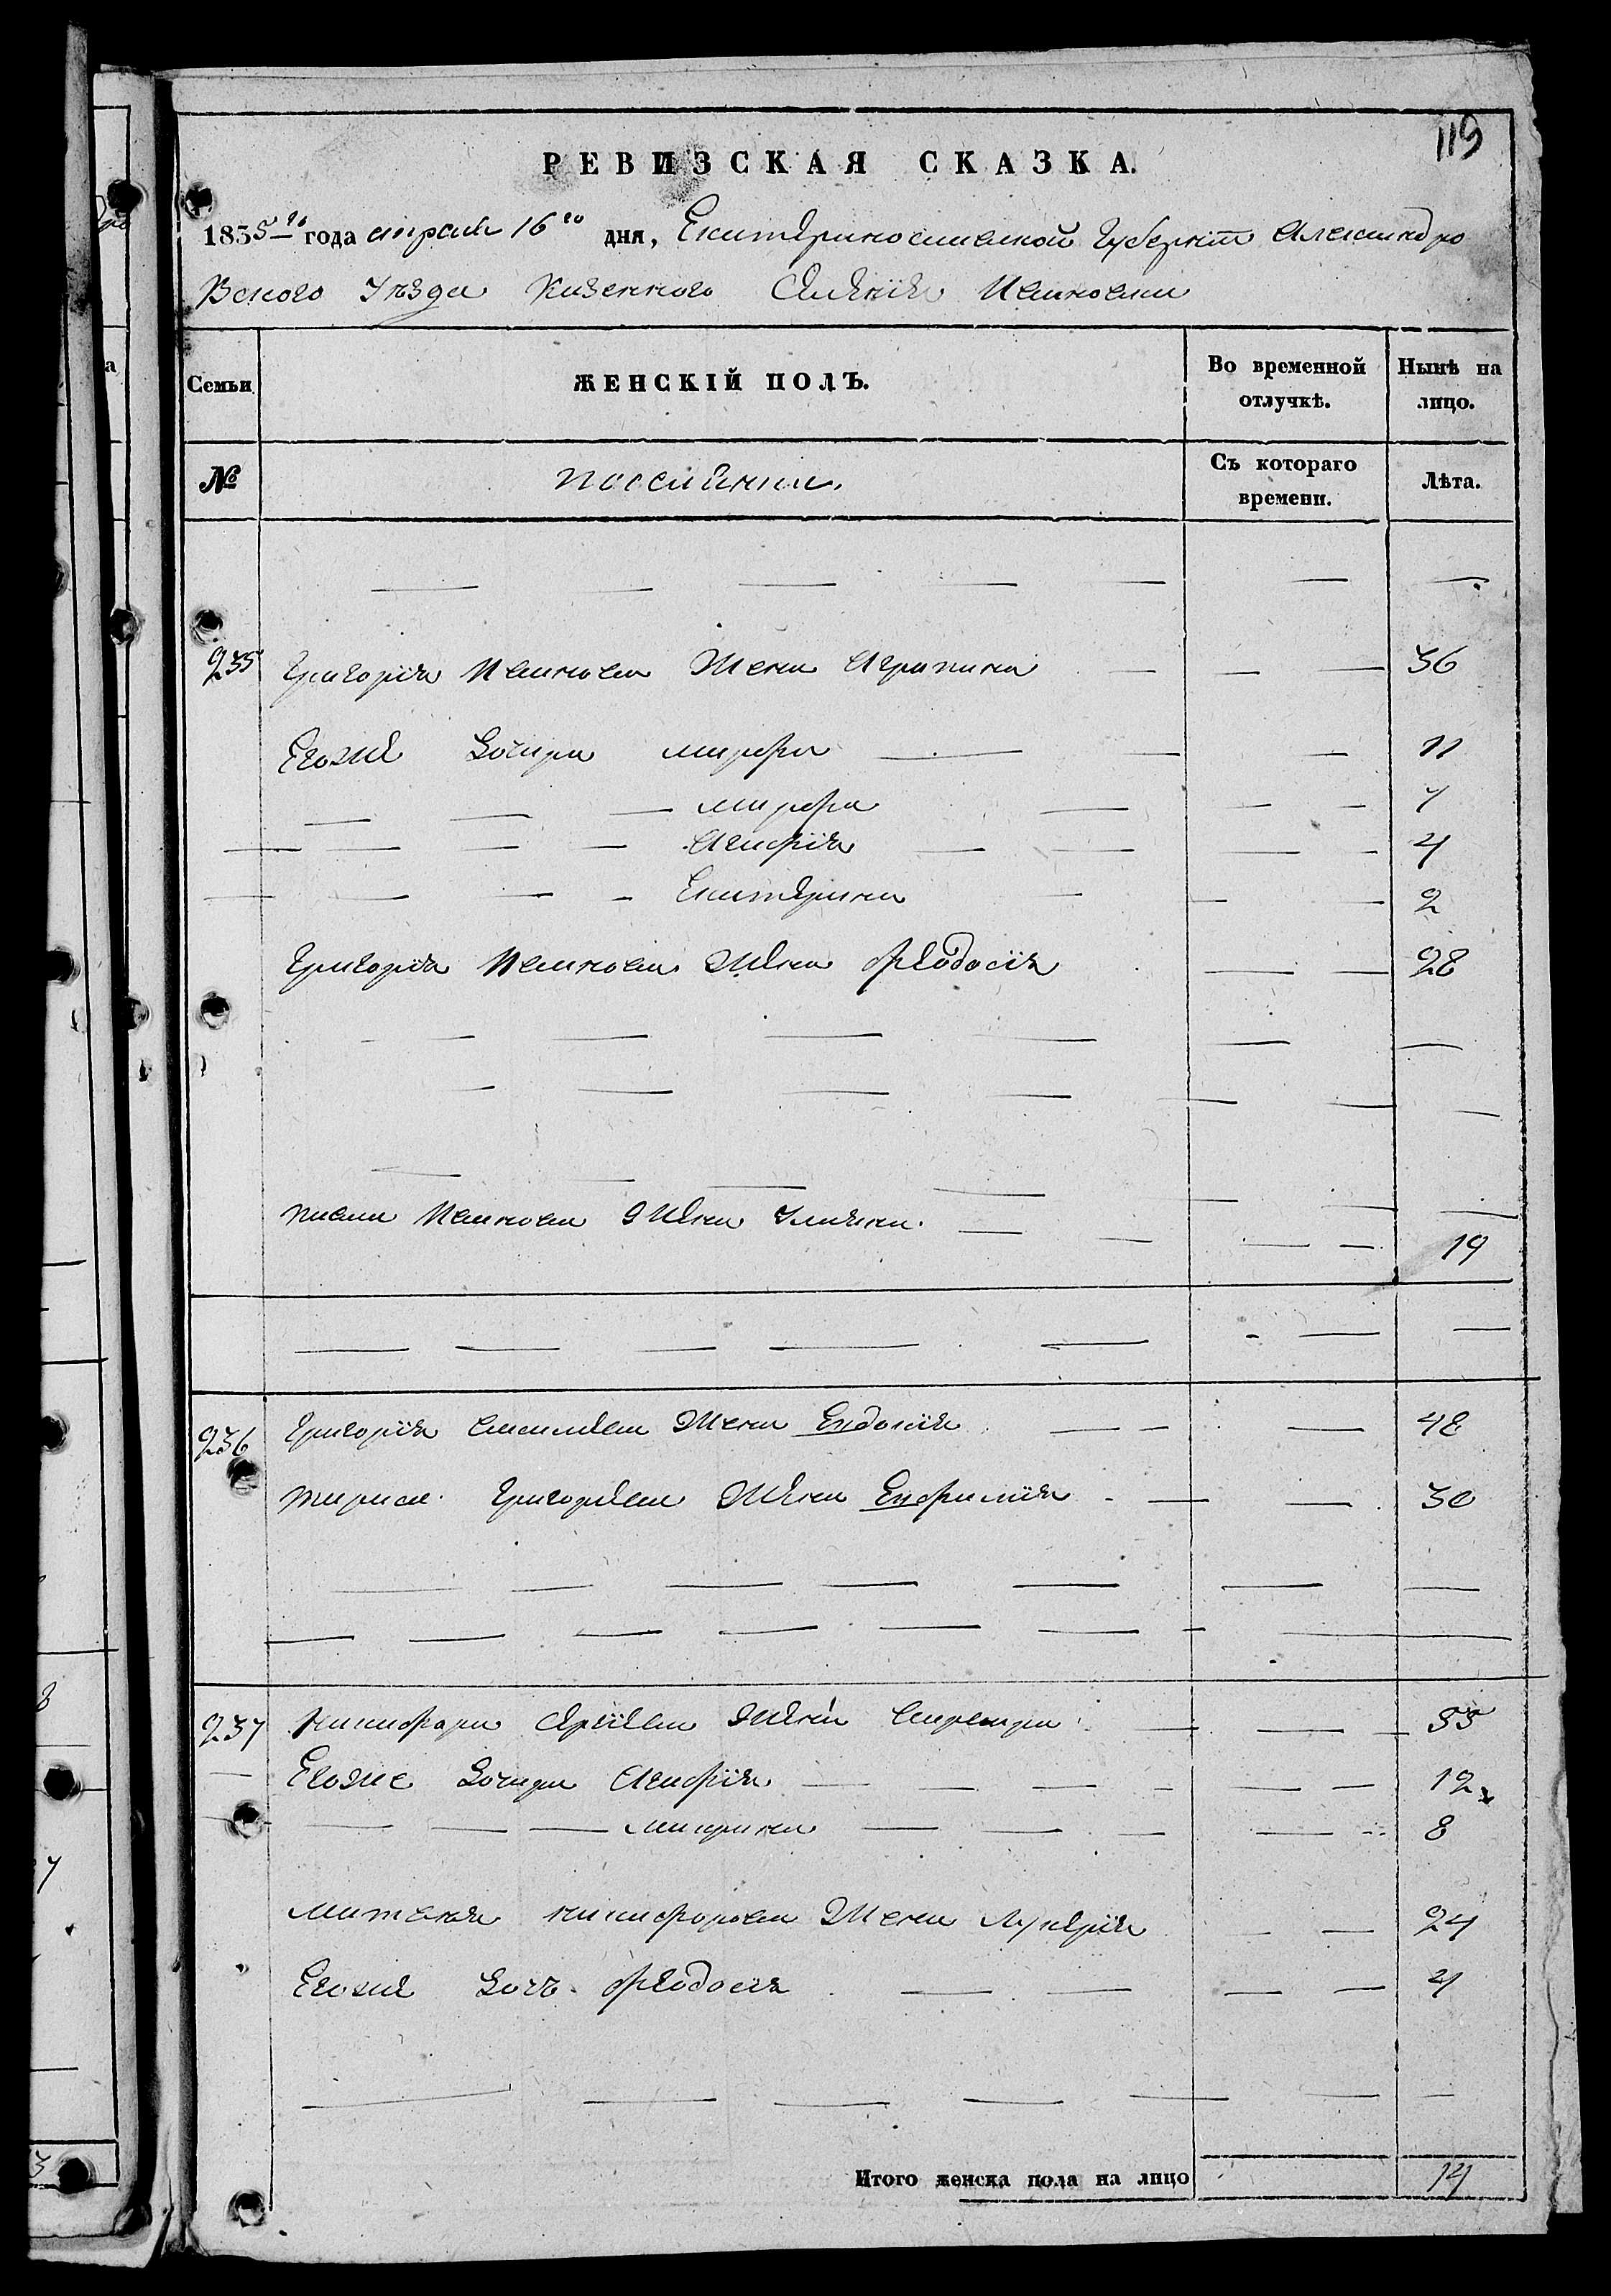 119
РЕВИЗСКАЯ СКАЗКА.
1835 го года апреля 16 го дня, Екатеринославской Губернiи Александро
Вского Уѣзда Казенного Селенiя Ивановки
Семьи ЖЕНСКIЙ ПОЛЪ. Во временной отлучкѣ. Нынѣ на лицо.
№ поселяне. Съ котораго времени. Лѣта.
235 Григорiя Иванова Жена Агрипина 36
Егоже Дочери марфа 11
марфа 7
Агафiя 4
Екатерина 2
Григорiя Иванова Жена Феодосiя 28
Иванова Жена Улияна 19
236 Григорiя Жена Евдокiя 48
Григорiева Жена Евфимия 30
237 Никифора Жена 55
Егоже Дочери Агафiя 12
марина 8
матвея никифорова Жена Лукерiя 24
Егоже Дочь Феодосiя 4
Итого женска пола на лицо 14